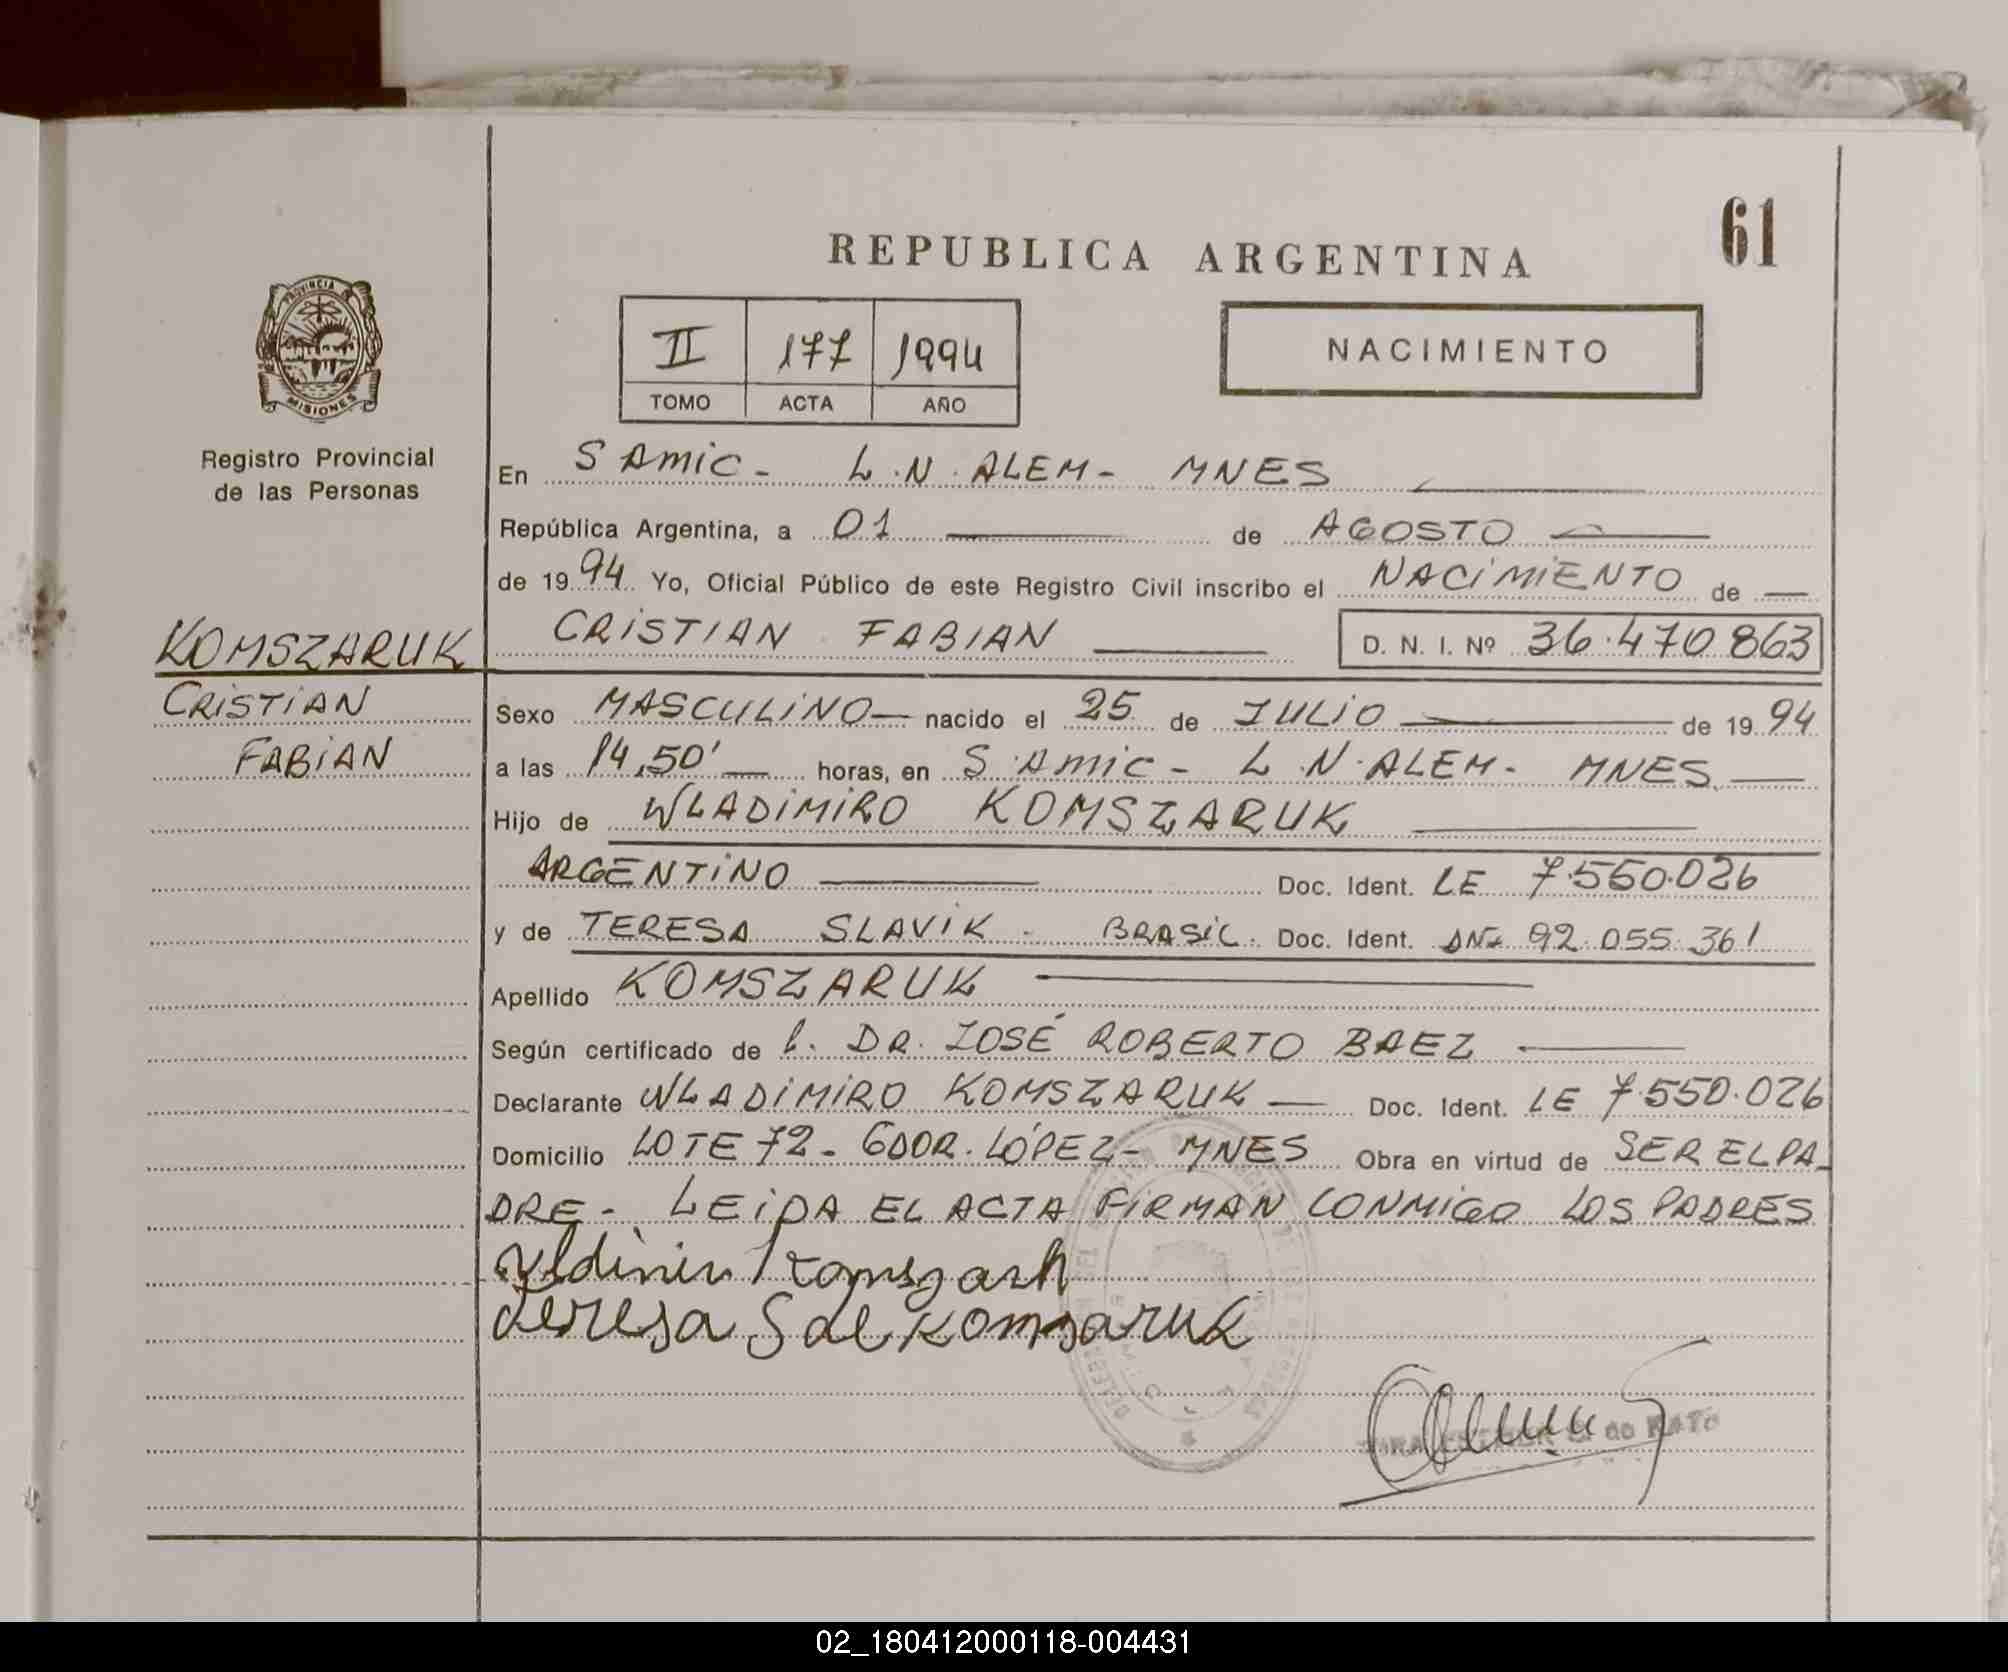 61
REPUBLICA ARGENTINA
PROVINCIA
MISIONES
II 177 1994
TOMO ACTA AÑO
NACIMIENTO
Registro Provincial
de las Personas
En SAMIC - L.N.ALEM - MNES
República Argentina, a 01 de AGOSTO
de 1994 Yo, Oficial Público de este Registro Civil inscribo el NACIMIENTO de
CRISTIAN FABIAN D. N. I. Nº 36.470.863
KOMSZARUK
CRISTIAN
FABIAN
Sexo MASCULINO nacido el 25 de JULIO de 1994
a las 14,50' horas, en SAMIC - L.N.ALEM - MNES
Hijo de WLADIMIRO KOMSZARUK
ARGENTINO Doc. Ident. LE 7.550.026
y de TERESA SLAVIK - BRASIL. Doc. Ident. DNI 92.055.361
Apellido KOMSZARUK
Según certificado de DR. JOSÉ ROBERTO BAEZ
Declarante WLADIMIRO KOMSZARUK Doc. Ident. LE 7.550.026
Domicilio LOTE 72 - GDOR. LÓPEZ - MNES Obra en virtud de SER EL PA-
DRE - LEIDA EL ACTA FIRMAN CONMIGO LOS PADRES
teresa komsaruk
02_180412000118-004431